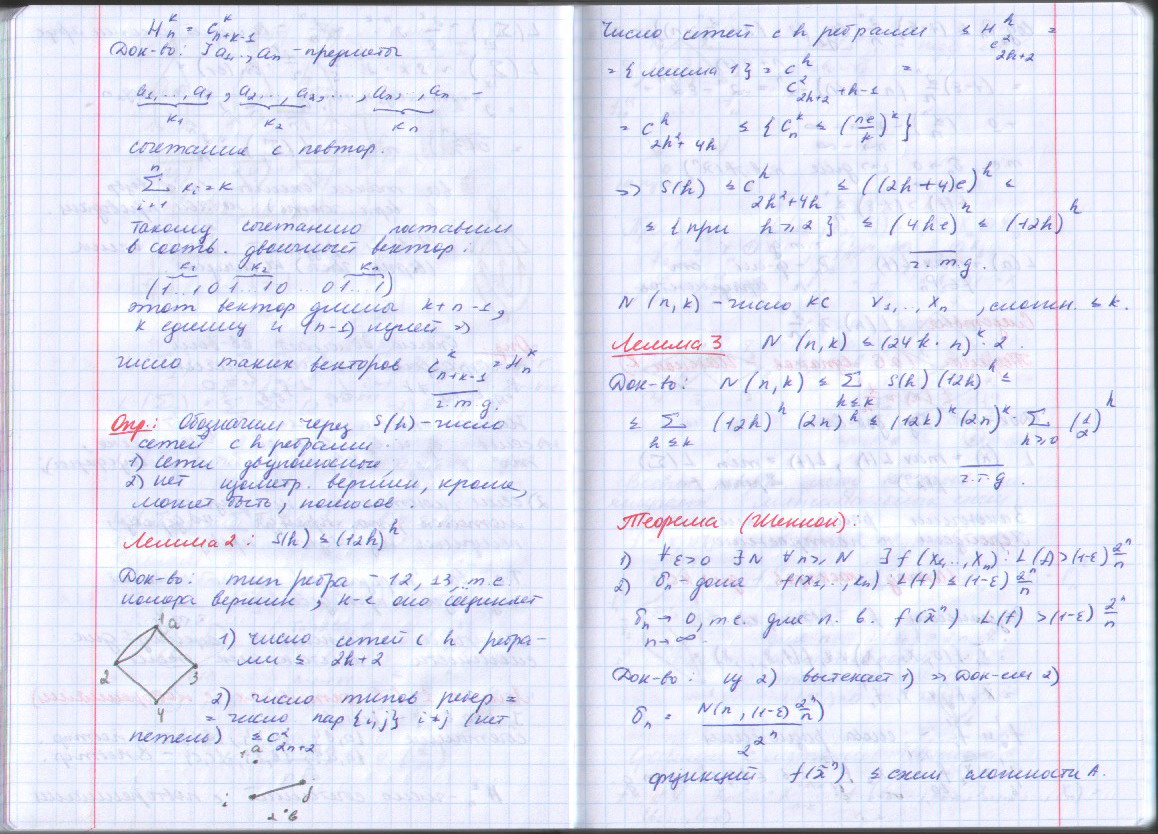 H_n^k = C_{n+k-1}^k
Док-во: ] a₁,..,aₙ - предметы
a₁,...,a₁, a₂...,a₂,..., aₙ,..,aₙ -
k₁ k₂ kₙ
сочетание с повтор.
∑_{i=1}^n kᵢ = k
такому сочетанию поставим
в соотв. двоичный вектор:
k₁ k₂ kₙ
(1...1 0 1...1 0 ... 0 1...1)
этот вектор длины k+n-1,
k единиц и (n-1) нулей ⇒
число таких векторов C_{n+k-1}^k = H_n^k
ч.т.д.
Опр.: Обозначим через S(h) - число
сетей с h ребрами.
1) сети двуполюсные,
2) нет изометр. вершин, кроме,
может быть, полюсов.
Лемма 2: S(h) ≤ (12h)^h
Док-во: тип ребра - 12, 13, т.е.
номера вершин, к-е оно соединяет
1 a
2 3
4
1) число сетей с h ребра-
ми ≤ 2h+2
2) число типов ребер =
= число пар {i,j} i≠j (нет
петель) ≤ C²_{2h+2}
1 a
i j
2 b
Число сетей с h ребрами ≤ H^h_{C²_{2h+2}} =
= {лемма 1} = C^h_{C²_{2h+2}+h-1} =
= C^h_{2h²+4h} ≤ {C_n^k ≤ (ne/k)^k}
⇒ S(h) ≤ C^h_{2h²+4h} ≤ ((2h+4)e)^h ≤
≤ {при h≥2} ≤ (4he)^h ≤ (12h)^h
ч.т.д.
N(n,k) - число КС x₁,..,xₙ, сложн. ≤ k.
Лемма 3 N(n,k) ≤ (24k·n)^k·2.
Док-во: N(n,k) ≤ ∑_{h≤k} S(h)(12h)^h ≤
≤ ∑_{h≤k} (12h)^h (2n)^h ≤ (12k)^k (2n)^k · ∑_{h≥0} (1/2)^h
ч.т.д.
Теорема (Шеннон):
1) ∀ε>0 ∃N ∀n≥N ∃f(x₁,..,xₙ): L(f)>(1-ε)2ⁿ/n
2) δₙ - доля f(x₁,..,xₙ) L(f) ≤ (1-ε)2ⁿ/n
δₙ → 0, т.е. для п.в. f(x̃ⁿ) L(f) > (1-ε)2ⁿ/n
n→∞
Док-во: из 2) вытекает 1) ⇒ Док-ем 2)
δₙ = N(n,(1-ε)2ⁿ/n) / 2^{2ⁿ}
функций f(x̃ⁿ) ≤ схем сложности A.